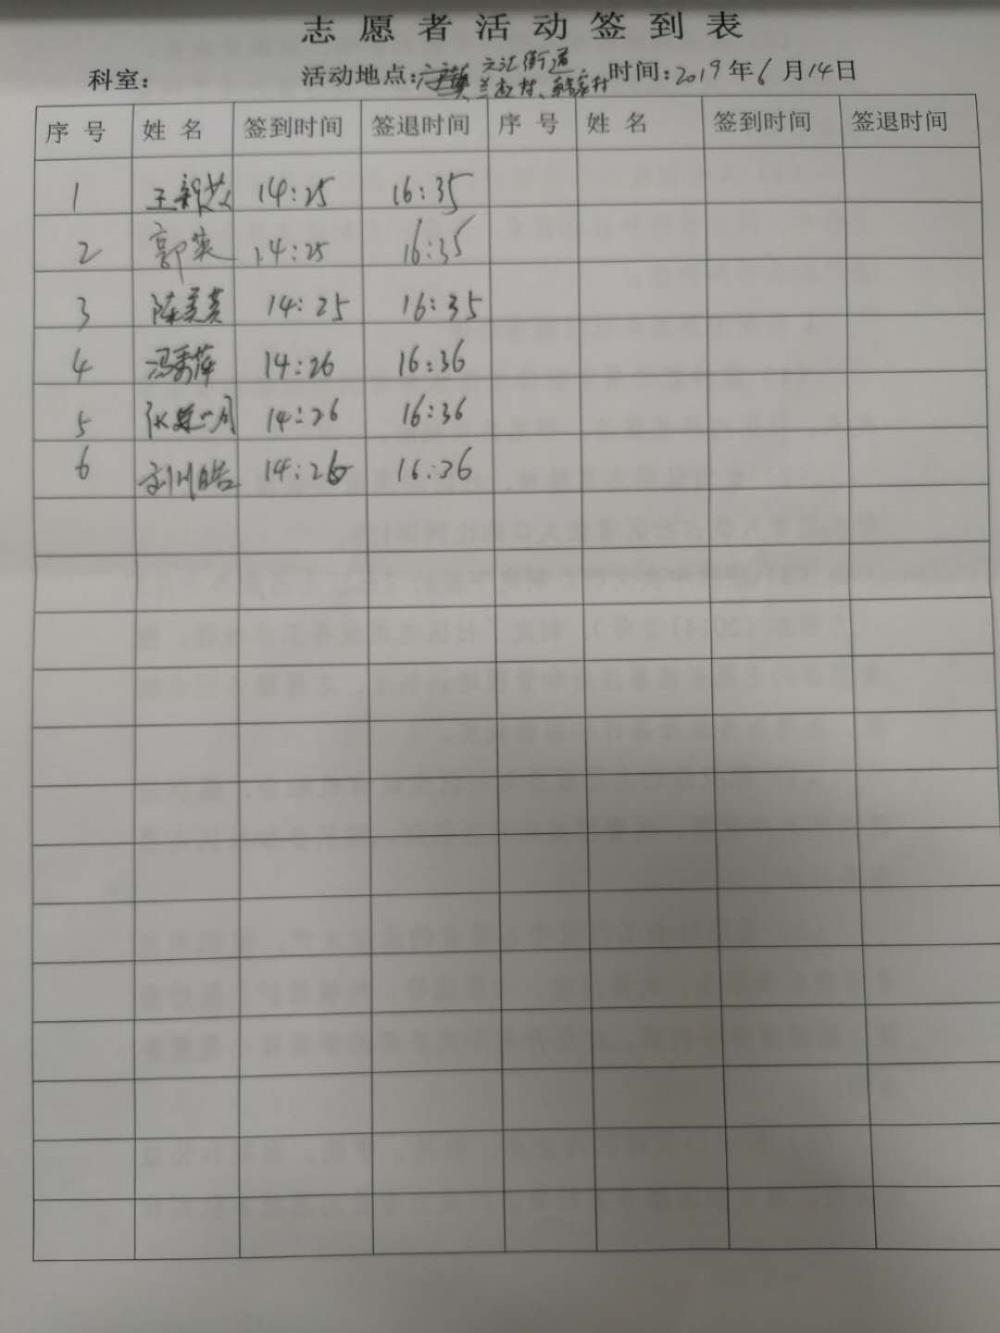 志愿者活动签到表
科室： 活动地点： 六汇街道 时间：2019年6月14日
序号 姓名 签到时间 签退时间 序号 姓名 签到时间 签退时间
1 14:25 16:35
2 郭英 14:25 16:35
3 陈美英 14:25 16:35
4 冯秀萍 14:26 16:36
5 14:26 16:36
6 刘皓 14:26 16:36